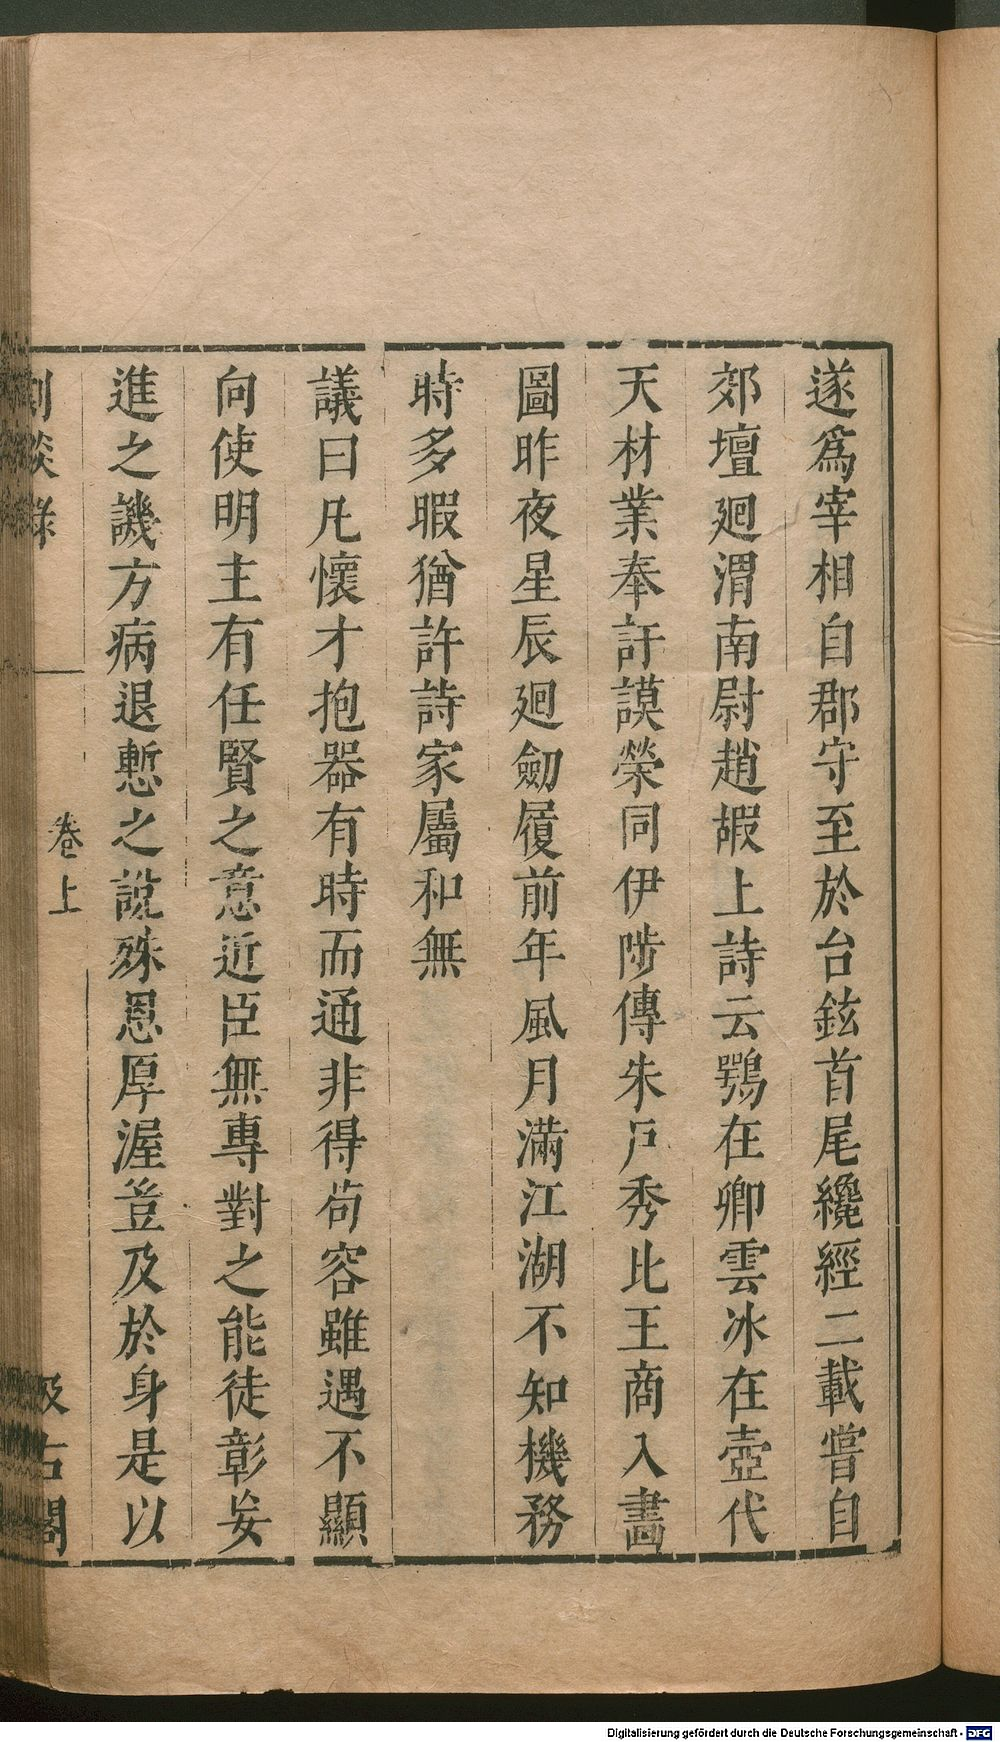 遂為宰相自郡守至於台鉉首尾纔經二載嘗自
郊壇廻渭南尉趙嘏上詩云鶚在卿雲冰在壺代
天材業奉訏謨榮同伊陟傳朱戶秀比王商入畵
圖昨夜星辰廻劒履前年風月滿江湖不知機務
時多暇猶許詩家屬和無
議曰凡懷才抱器有時而通非得茍容雖遇不顯
向使明主有任賢之意近臣無專對之能徒彰妄
進之譏方病退慙之說殊恩厚渥豈及於身是以
劇談錄
卷上
汲古閣
Digitalisierung gefördert durch die Deutsche Forschungsgemeinschaft - DFG